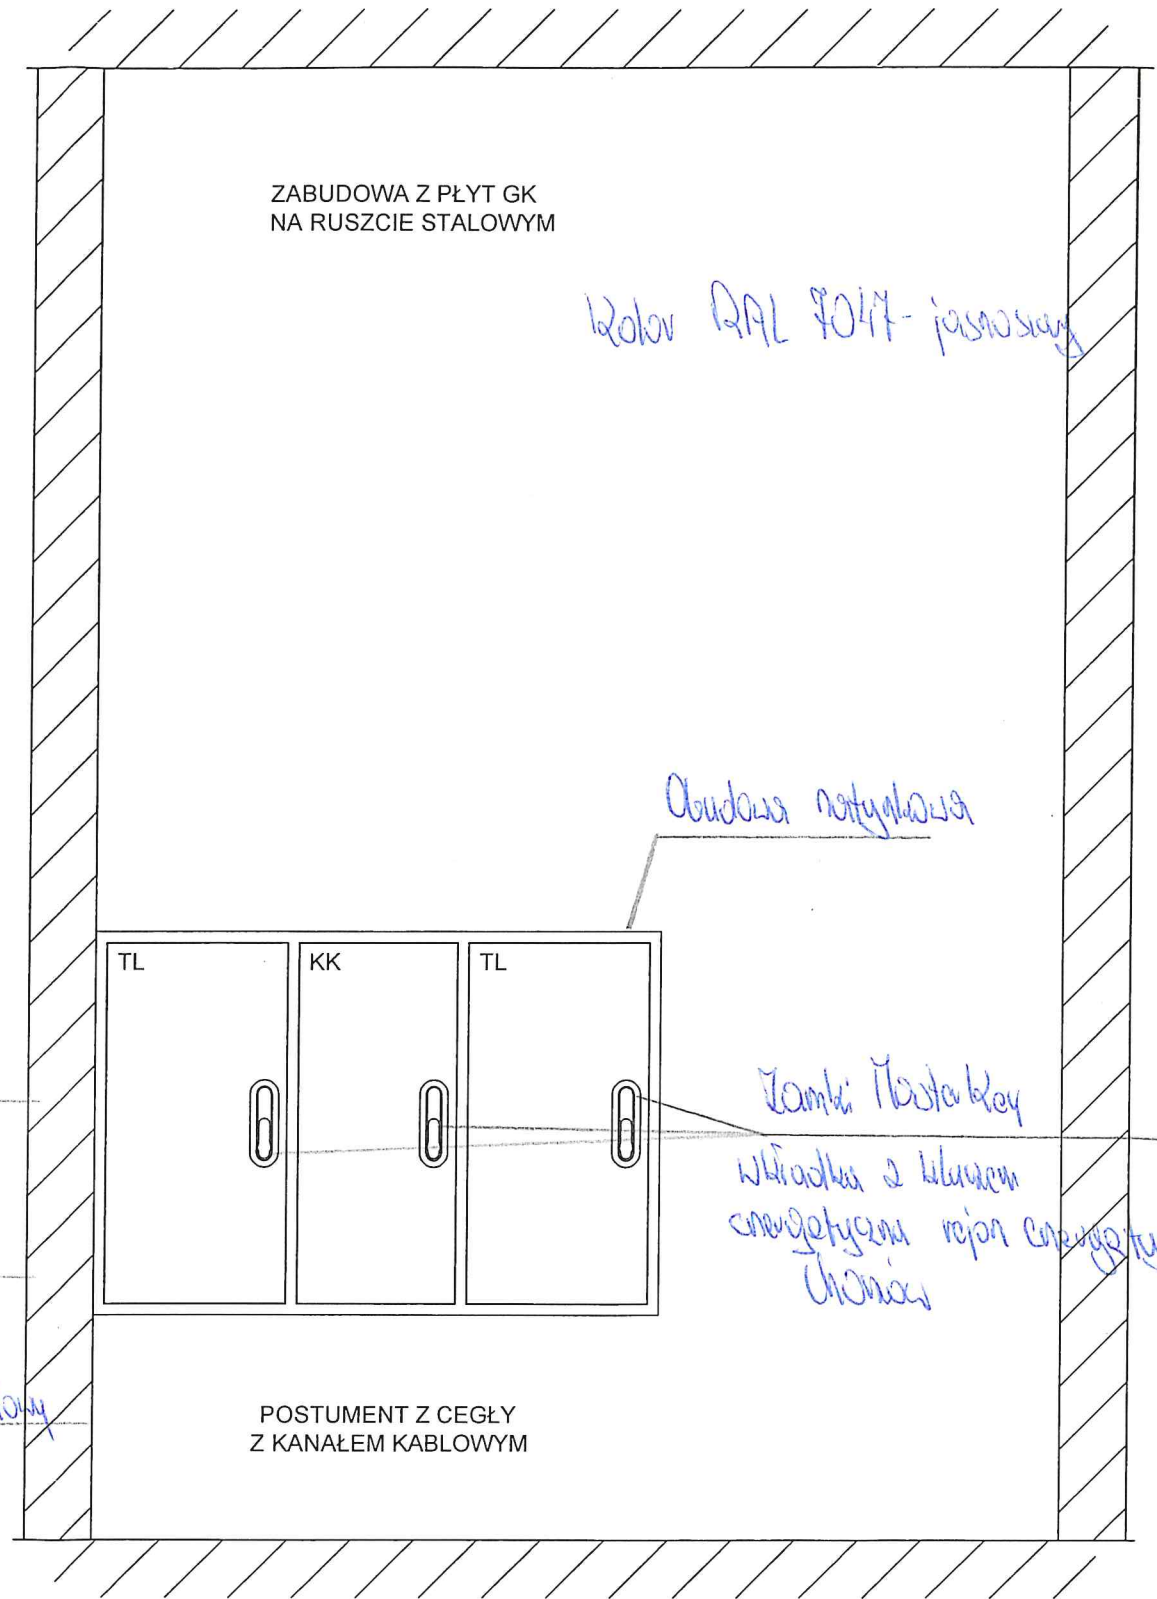 ZABUDOWA Z PŁYT GK
NA RUSZCIE STALOWYM
Kolor RAL 7047 - jasnoszary
Obudowa natynkowa
TL
KK
TL
Zamki Master Key
wkładka z kluczem
energetyczna rejon energety
Chorzów
POSTUMENT Z CEGŁY
Z KANAŁEM KABLOWYM